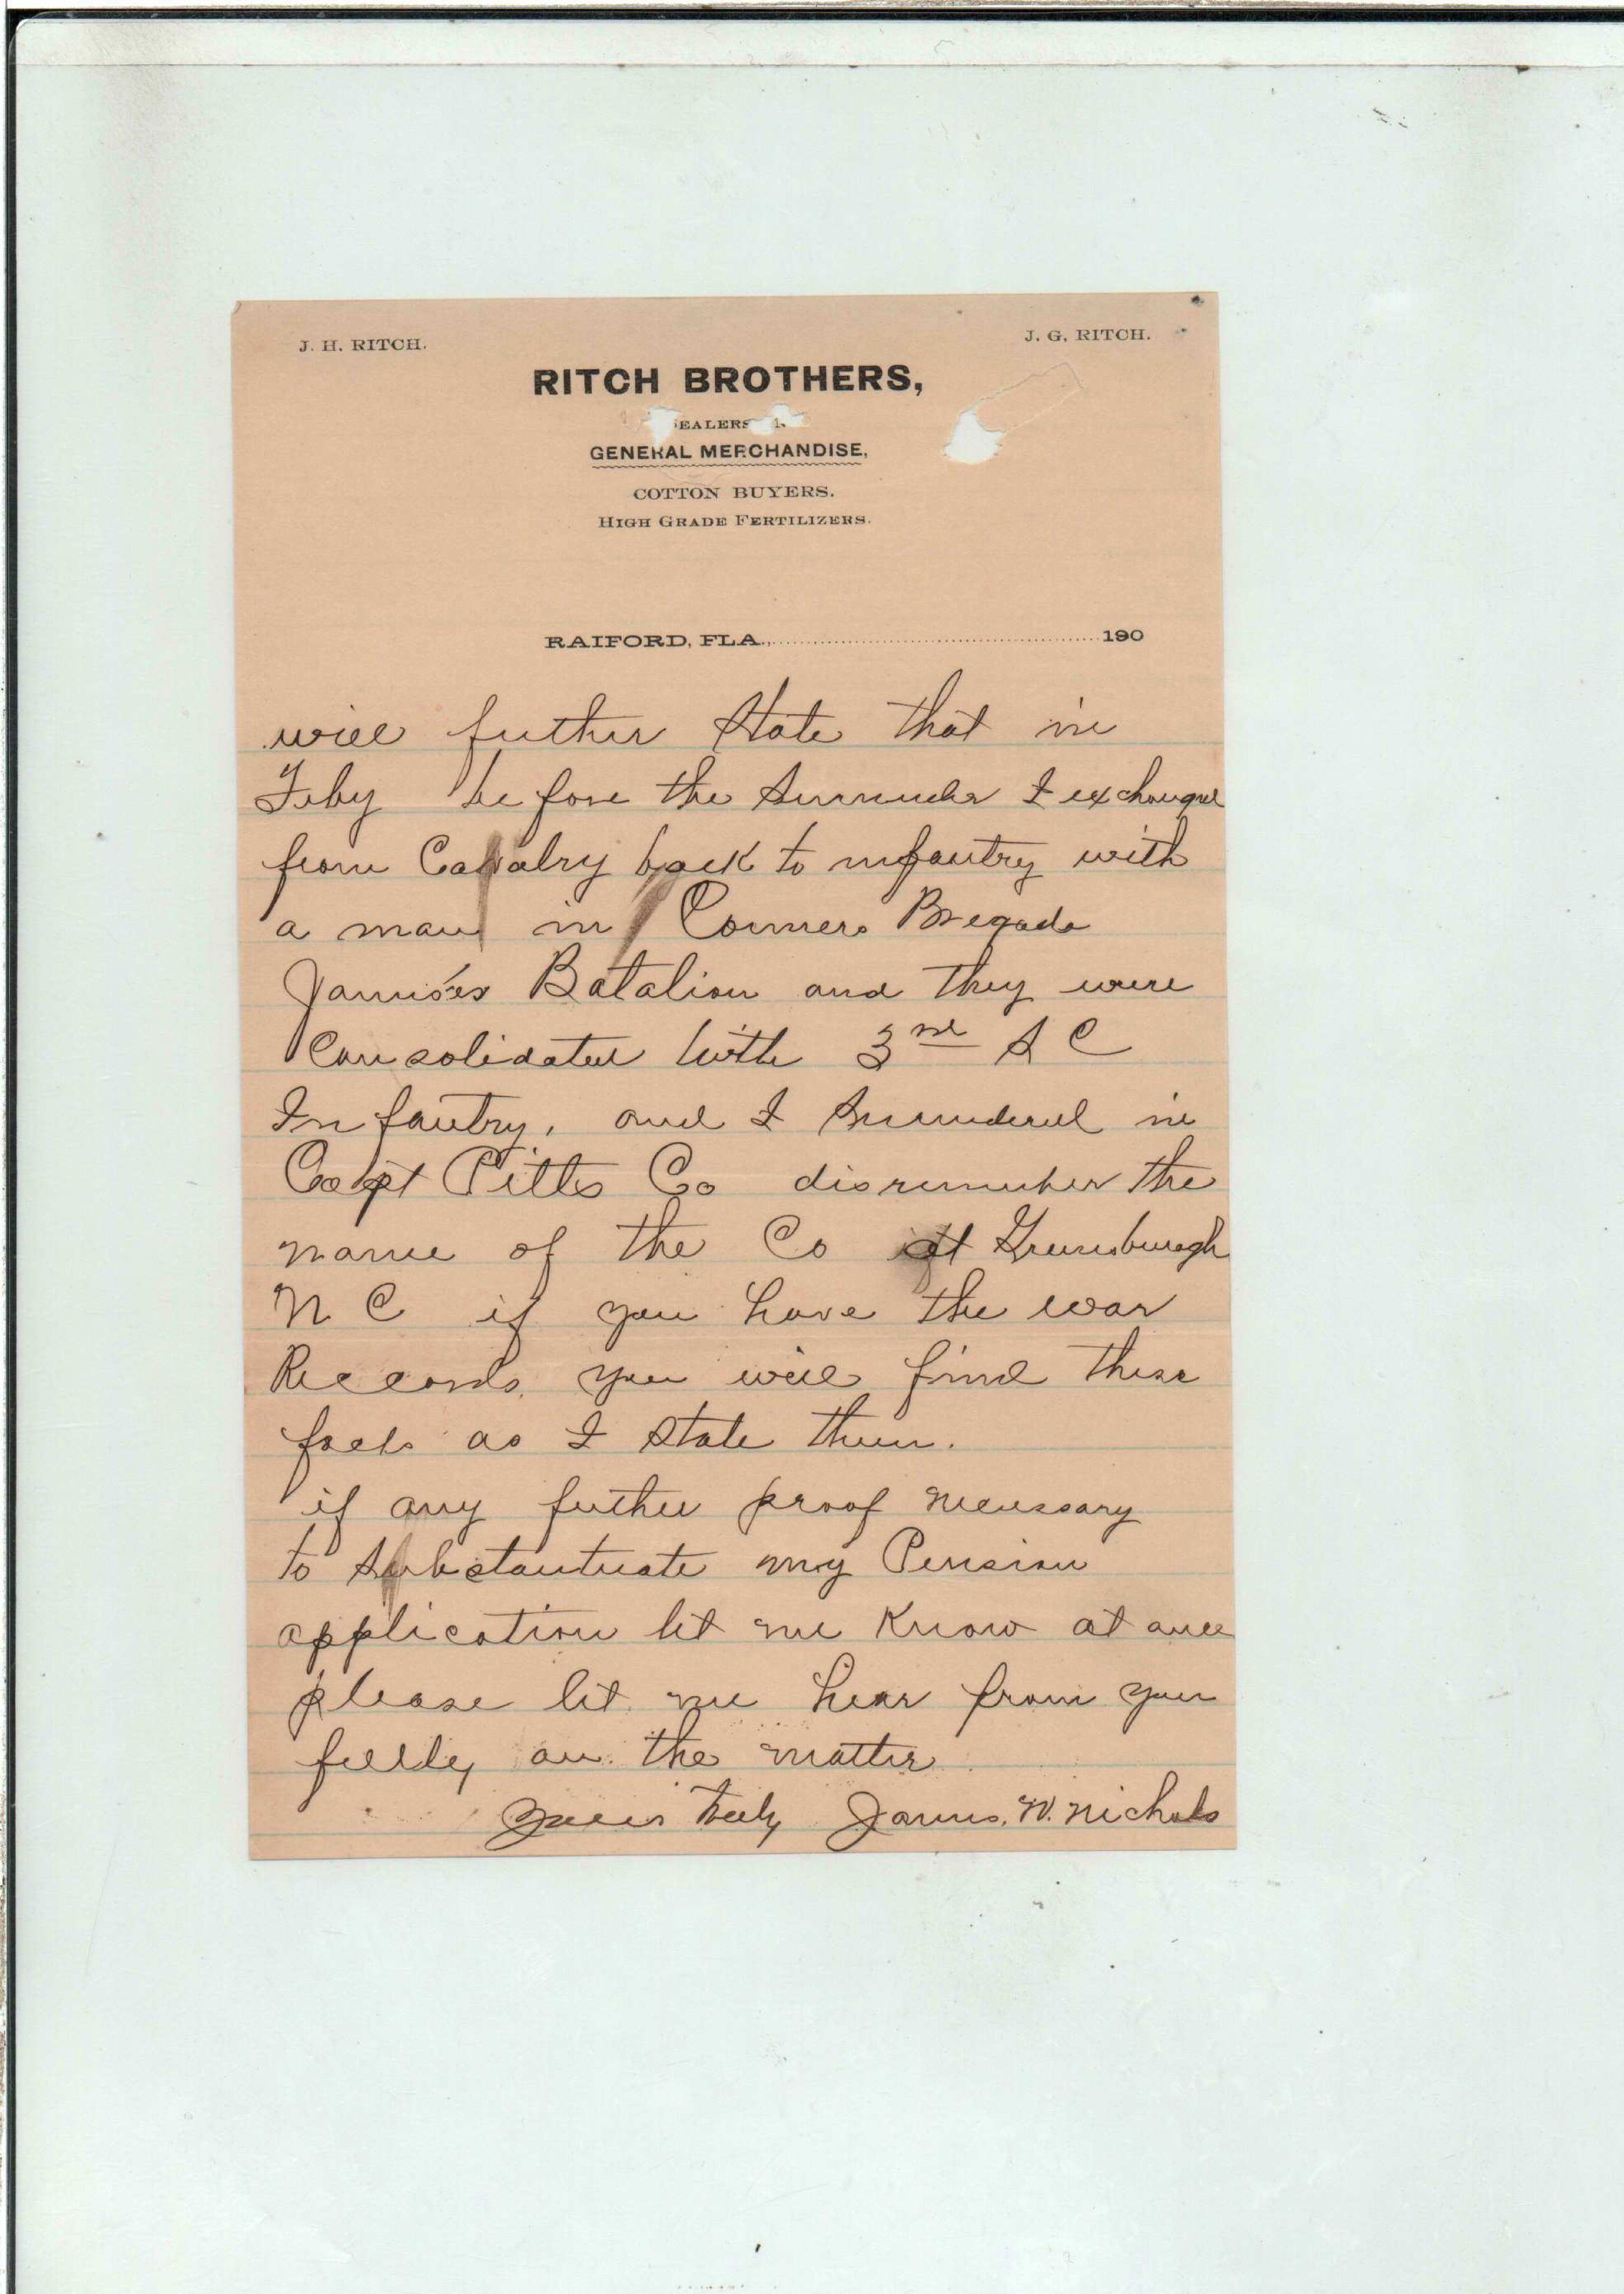 J. H. RITCH.
J. G. RITCH.
RITCH BROTHERS,
EALERS
GENERAL MERCHANDISE,
COTTON BUYERS.
HIGH GRADE FERTILIZERS.
RAIFORD, FLA., 190
will futher State that in
Feby before the Surrender I exchanged
from Cavalry back to infantry with
a man in Conners Bregade
Batalion and they were
Consolidated with 3rd S C
Infantry, and I Surrendered in
Capt Pitts Co disremember the
name of the Co at Greensburogh
N C if you have the war
Records you will find these
facts as I State them.
if any futher proof necessary
to Substantuate my Pension
application let me Know at once
please let me hear from you
fully on the matter
Yours Truly James. W. Nichols